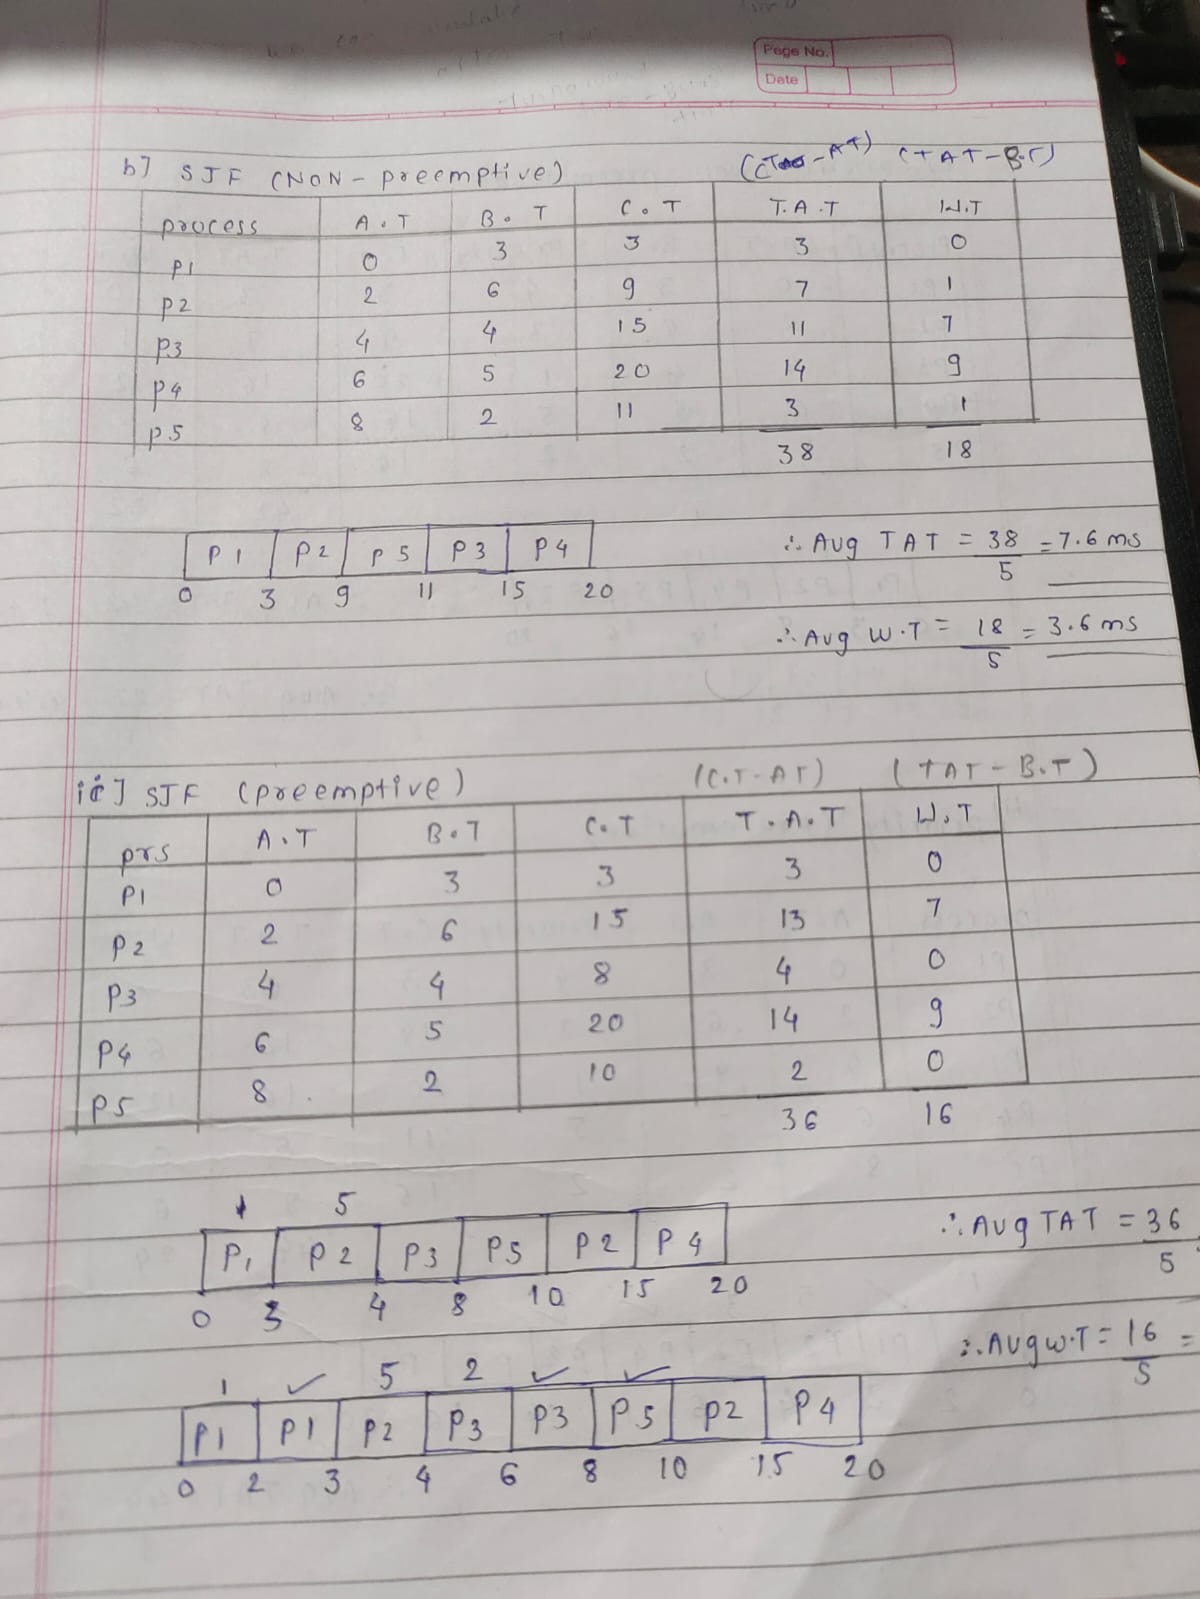 Page No.
Date
b] SJF (NON - preemptive) (CT - AT) (TAT - B.T)
process A.T B.T C.T T.A.T W.T
P1 0 3 3 3 0
P2 2 6 9 7 1
P3 4 4 15 11 7
P4 6 5 20 14 9
P5 8 2 11 3 1
38 18
P1 P2 P5 P3 P4
0 3 9 11 15 20
∴ Avg TAT = 38/5 = 7.6 ms
∴ Avg W.T = 18/5 = 3.6 ms
ii] SJF (preemptive) (C.T - AT) (TAT - B.T)
prs A.T B.T C.T T.A.T W.T
P1 0 3 3 3 0
P2 2 6 15 13 7
P3 4 4 8 4 0
P4 6 5 20 14 9
P5 8 2 10 2 0
36 16
1 5
P1 P2 P3 P5 P2 P4
0 3 4 8 10 15 20
∴ Avg TAT = 36/5
∴ Avg W.T = 16/5 =
1 ✓ 5 2 ✓ ✓
P1 P1 P2 P3 P3 P5 P2 P4
0 2 3 4 6 8 10 15 20